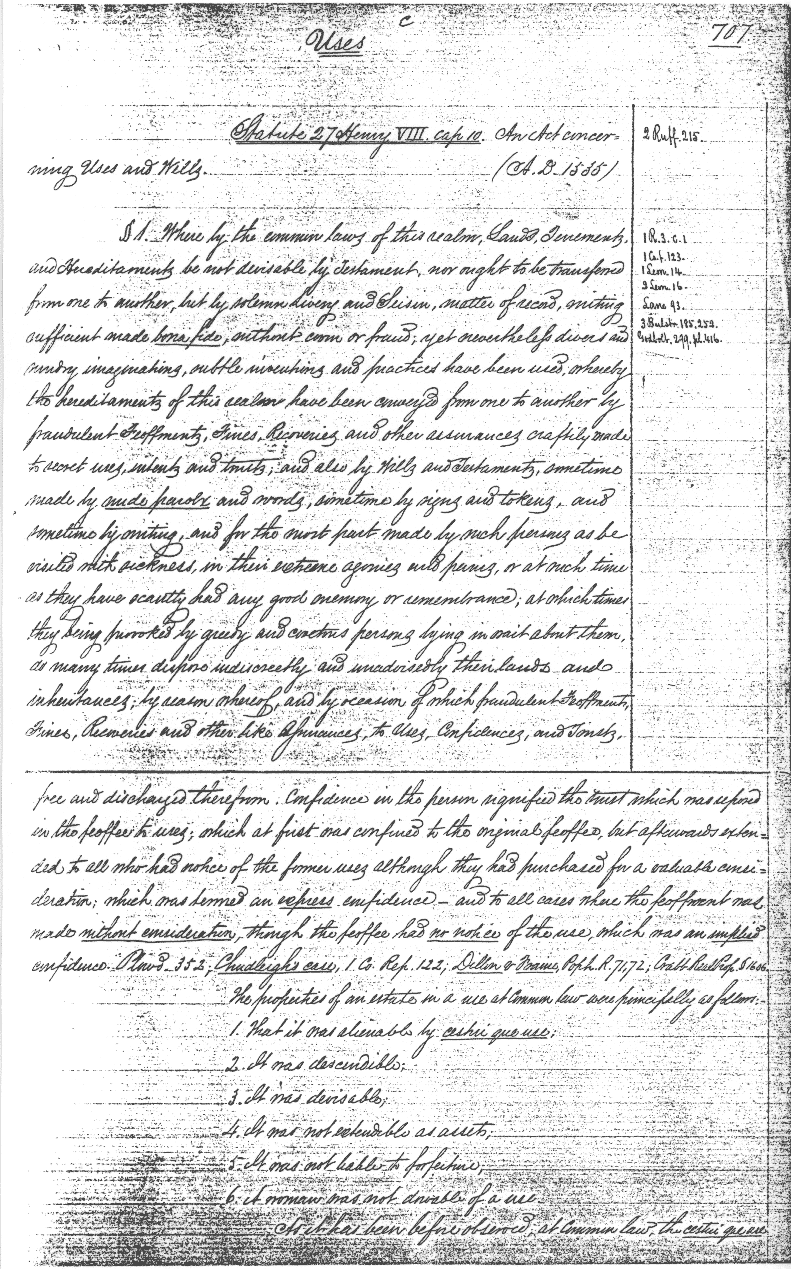 C
Uses
707
Statute 27 Henry VIII. Cap 10. An Act concer=
2 Ruff. 215.
ning Uses and Wills.
(A. D. 1535)
§ 1. Where by the common laws of this realm, Lands, Tenements,
1 R. 3. c. 1
and Hereditaments be not devisable by Testament, nor ought to be transferred
1 Cap. 123.
1 Leon. 14.
from one to another, but by solemn livery and Seisin, matter of record, writing
2 Leon. 16.
Lane 93.
sufficient made bona fide, without covin or fraud; yet nevertheless divers and
3 Bulstr. 185, 252.
Godbolt. 299. pl. 416.
sundry imaginations, subtle inventions and practices have been used, whereby
the hereditaments of this realm have been conveyed from one to another by
fraudulent Feoffments, Fines, Recoveries and other assurances craftily made
to secret uses, intents and trusts; and also by Wills and Testaments, sometime
made by nude parolx and words, sometime by signs and tokens, and
sometime by writing, and for the most part made by such persons as be
visited with sickness, in their extreme agonies and pains, or at such time
as they have scantly had any good memory or remembrance; at which times
they being provoked by greedy and covetous persons lying in wait about them,
do many times dispose indiscreetly and unadvisedly their lands and
inheritances; by reason whereof, and by occasion of which fraudulent Feoffments,
Fines, Recoveries and other like Assurances, to Uses, Confidences, and Trusts,
free and discharged therefrom. Confidence in the person signified the trust which was reposed
in the feoffee to uses; which at first was confined to the original feoffee, but afterwards exten=
ded to all who had notice of the former uses although they had purchased for a valuable consi=
deration; which was termed an express confidence – and to all cases where the feoffment was
made without consideration, though the feoffee had no notice of the use, which was an implied
confidence. Plowd. 352; Chudleigh's case, 1 Co. Rep. 122; Dillon v Fraine, Poph. R. 71, 72; Crabb Real Prop. §
The properties of an estate in a use at Common law were principally as follows:–
1. That it was alienable by cestui que use;
2. It was descendible;
3. It was devisable;
4. It was not extendible as assets;
5. It was not liable to forfeiture;
6. A woman was not dowable of a use.
As it has been before observed, at Common law, the cestui que use